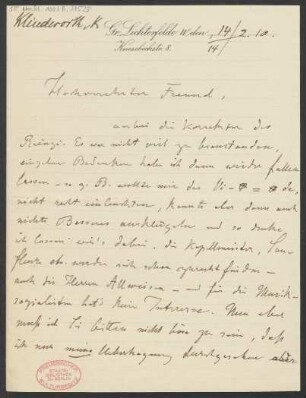 Klindworth, K
Gr. Lichterfelde W. den 14/2. 10.
14/
Hochverehrter Freund,
anbei die Korrektur des
Rienzi. Es war nicht viel zu beanstanden,
einzelne Bedenken habe ich dann wieder fallen
lassen – z. B. wollte mir das Vi- = de,
nicht recht einleuchten, konnte aber dann auch
nichts Besseres ausklügeln und so denke
ich lassen wir's dabei, die Kapellmeister,
etc. werden sich schon zurecht finden –
auch die Herren – und für die Musik-
hat's kein Interesse. Nun aber
muss ich Sie bitten nicht böse zu sein, dass
ich nur meine Uebertragung durchgesehen
STAATS-
BIBLIOTHEK
ZU BERLIN
KULTURBESITZ